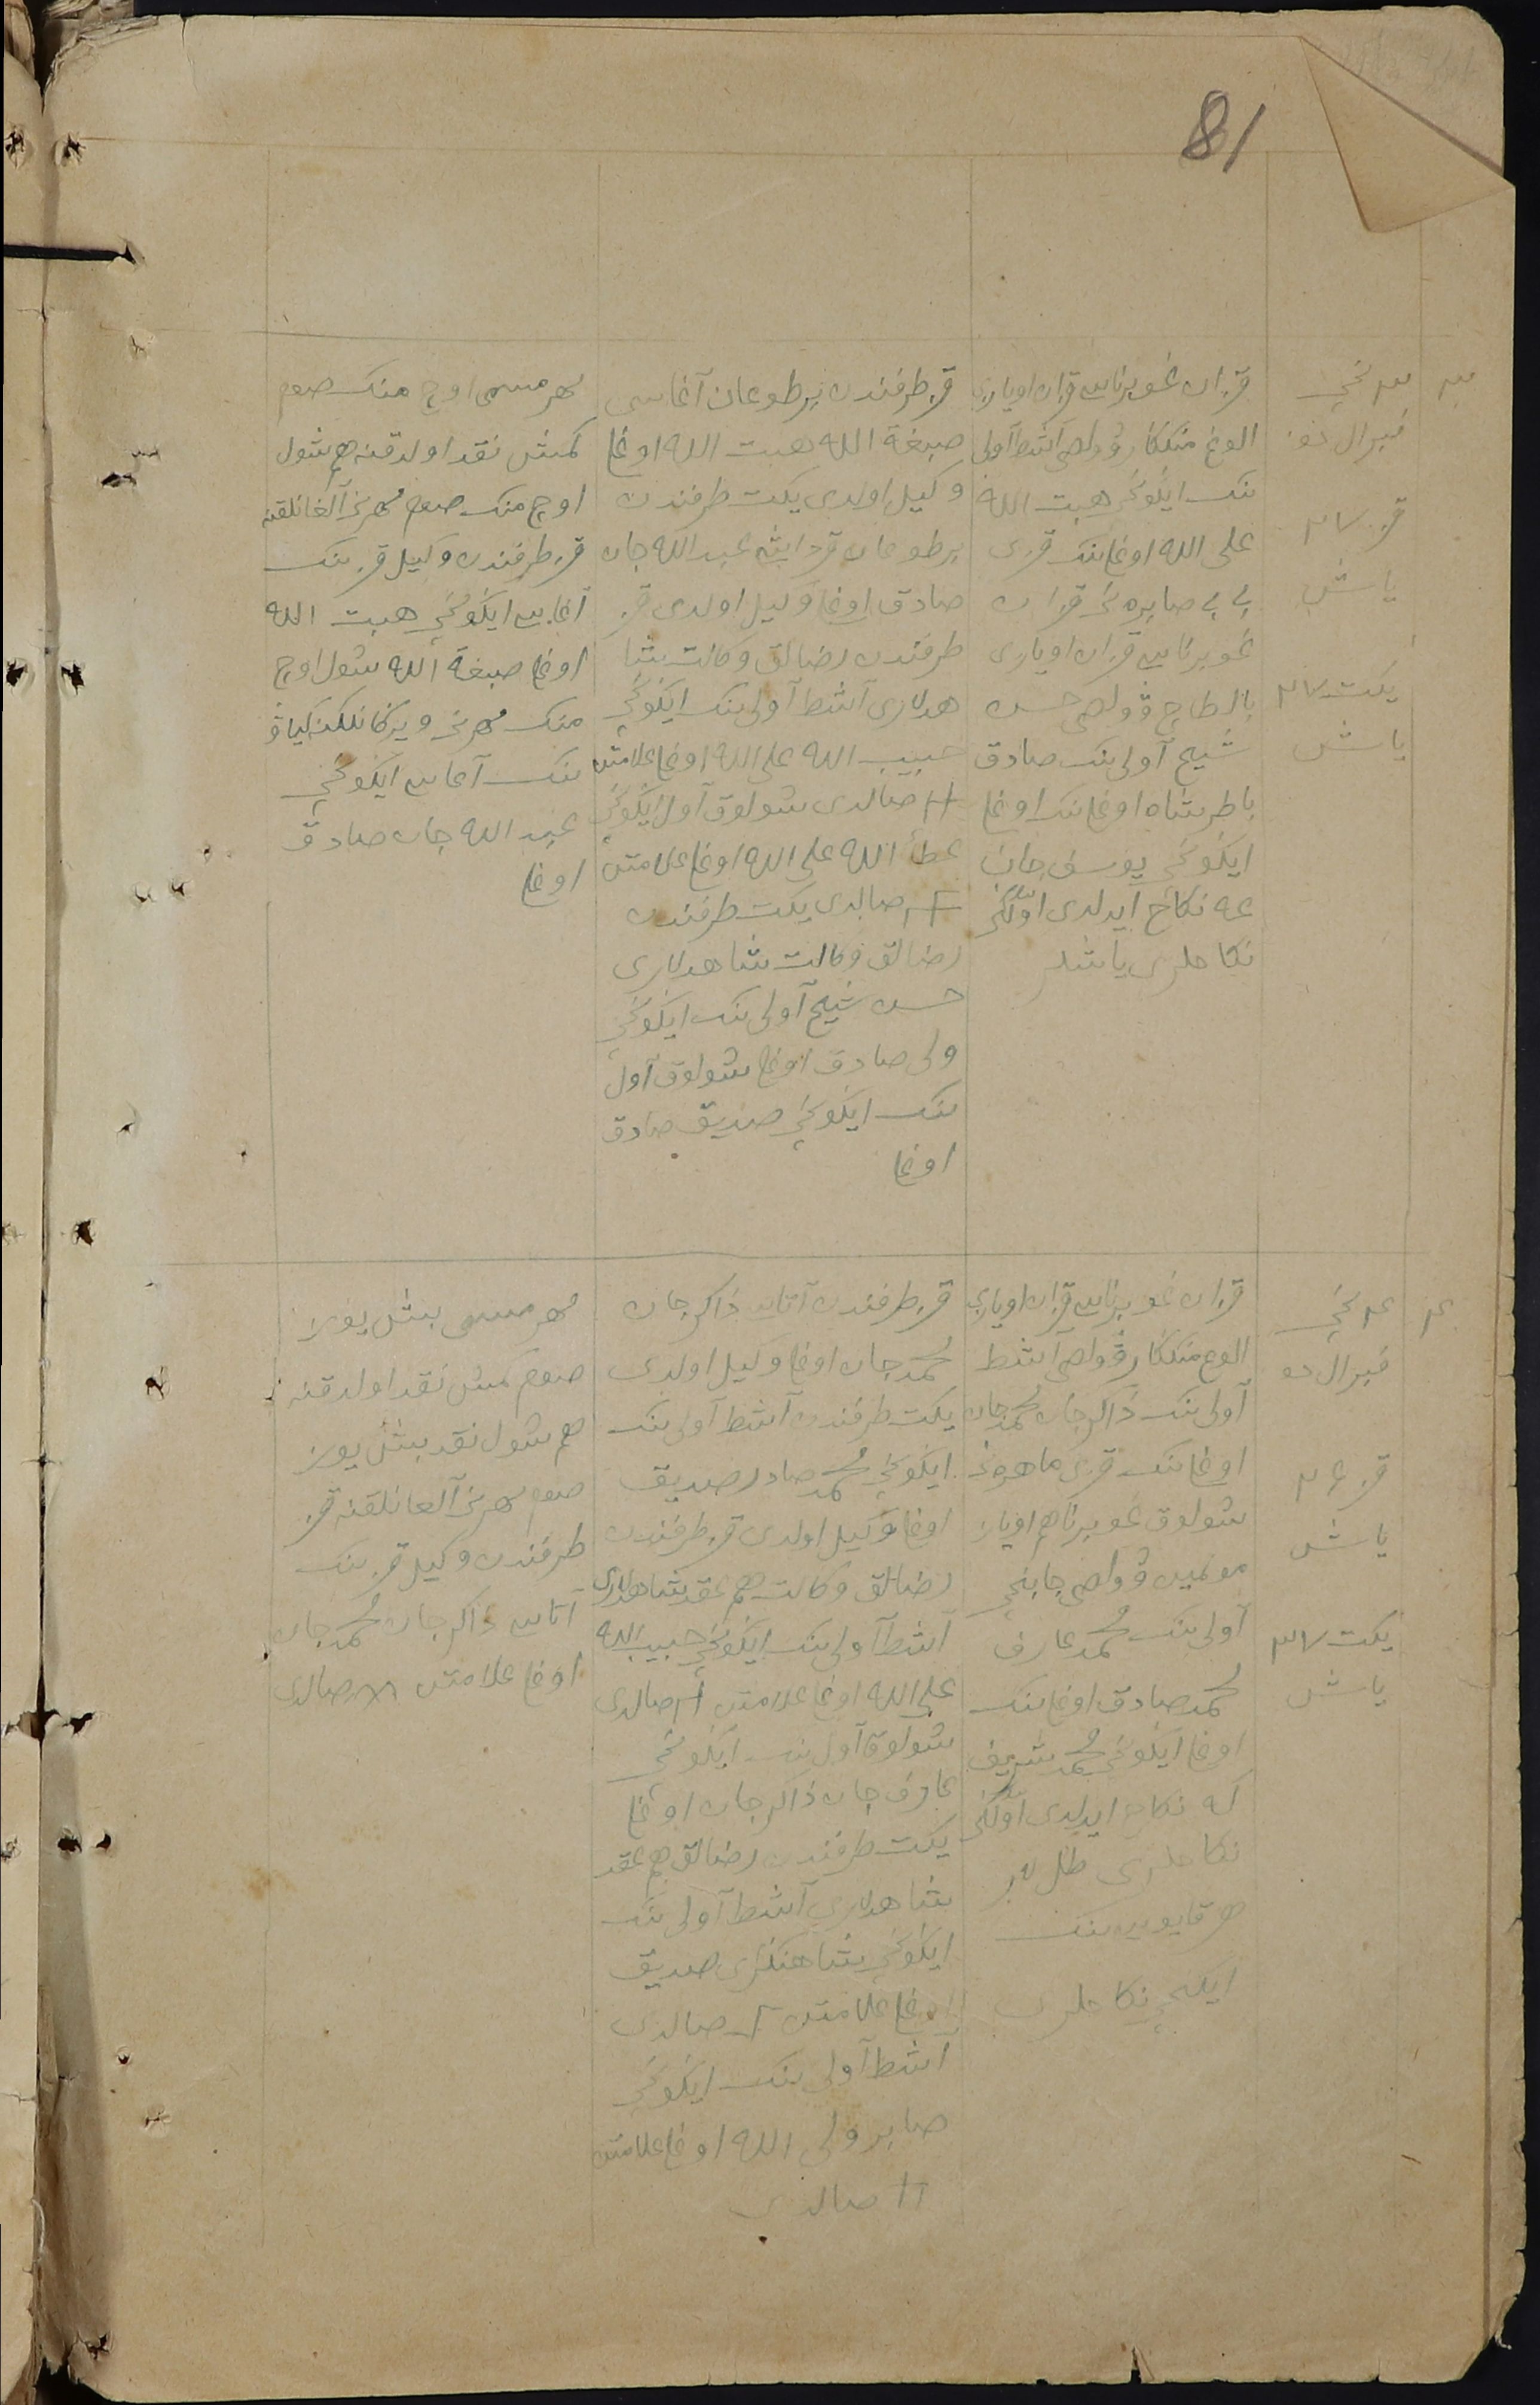 81
قزان غوبرناسی قزان اویازی
الوغ منککار ؤولصی آشط آولی
ننک ایگونچی هبت الله
علی الله اوغلیننک قزی
بی بی صابره نی قزان
غوبرناسی قزان اویازی
بالطاچ ؤولصی حسن
شیخ آولی ننک صادق
باطرشاه اوغلی ننک اوغلی
ایگونچی یوسف جان
غه نکاح ایدلدی اولگی
نکاحلری یاشلر
قز
یاش
یکت
یاش
قز طرفندن برطوغان آغاسی
صبغة الله هبت الله اوغلی
وکیل اولدی یکت طرفندن
برطوغان قرداشی عبد الله جان
صادق اوغلی وکیل اولدی قز
طرفندن رضالق وکالت شا
هدلاری آشط آولی ننک ایگونچی
حبیب الله علی الله اوغلی علامتن
صالدی شولوق آول ایگونچی
عطأ الله علی الله اوغلی علامتن
صالدی یکت طرفندن
رضالق وکالت شاهدلاری
حسن شیخ آولی ننک ایگونچی
ولی صادق اوغلی شولوق آول
ننک ایگونچی صدیق صادق
اوغلی
مهر مسمی اوچ منک صوم
کمش نقد اولدقنه هم شول
اوچ منک صوم مهرنی آلغانلقنه
قز طرفندن وکیل قز ننک
آغاسی ایگونچی هبت الله
اوغلی صبغة الله شول اوچ
منک مهرنی ویرگانلکنه کیاؤ
ننک آغاسی ایگونچی
عبد الله جان صادق
اوغلی
قزان غوبرناسی قزان اویازی
الوغ منککار ؤولصی آشط
آولی ننک ذاکرجان محمدجان
اوغلی ننک قزی ماهره نی
شولوق غوبرنا هم اویاز
مولمین ؤولصی
آولی ننک محمد عارف
محمد صادق اوغلی ننک
اوغلی ایگونچی محمد شریف
که نکاح ایدلدی اولگی
نکاحلری طللر
هر قایوسی ننک
ایکنچی نکاحلری
قز
یاش
یکت
یاش
قز طرفندن آتاسی ذاکر جان
محمد جان اوغلی وکیل اولدی
یکت طرفندن آشط آولی ننک
ایگونچی محمد صادر صدیق
اوغلی وکیل اولدی قز طرفندن
رضالق وکالت هم عقد شاهدلاری
آشط آولی ننک ایگونچی حبیب الله
علی الله اوغلی علامتن صالدی
شولوق آول ننک ایگونچی
عارف جان ذاکر جان اوغلی
یکت طرفندن رضالق هم عقد
شاهدلاری آشط آولی ننک
ایگونچی شاهنگری صدیق
اوغلی علامتن صالدی
آشط آولی ننک ایگونچی
صابر ولی الله اوغلی علامتن
صالدی
مهر مسمی بیش یوز
صوم کمش نقد اولدقنه
هم شول نقد بیش یوز
صوم مهرنی آلغانلقنه قز
طرفندن وکیل قز ننک
آتاسی ذاکر جان محمد جان
اوغلی علامتن صالدی